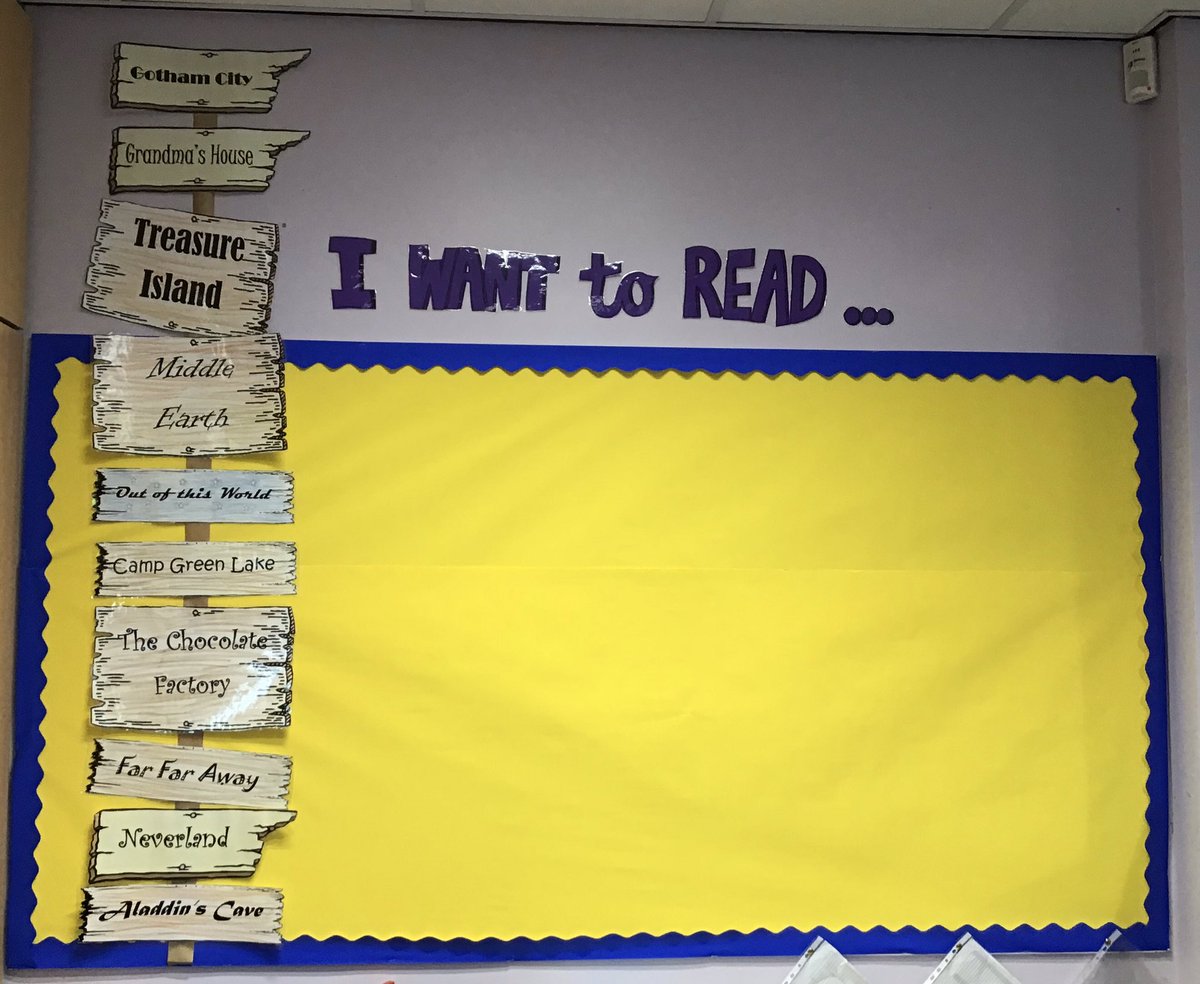 Gotham City
Grandma's House
Treasure
Island
I WANT to READ ...
Middle
Earth
Out of this World
Camp Green Lake
The Chocolate
Factory
Far Far Away
Neverland
Aladdin's Cave